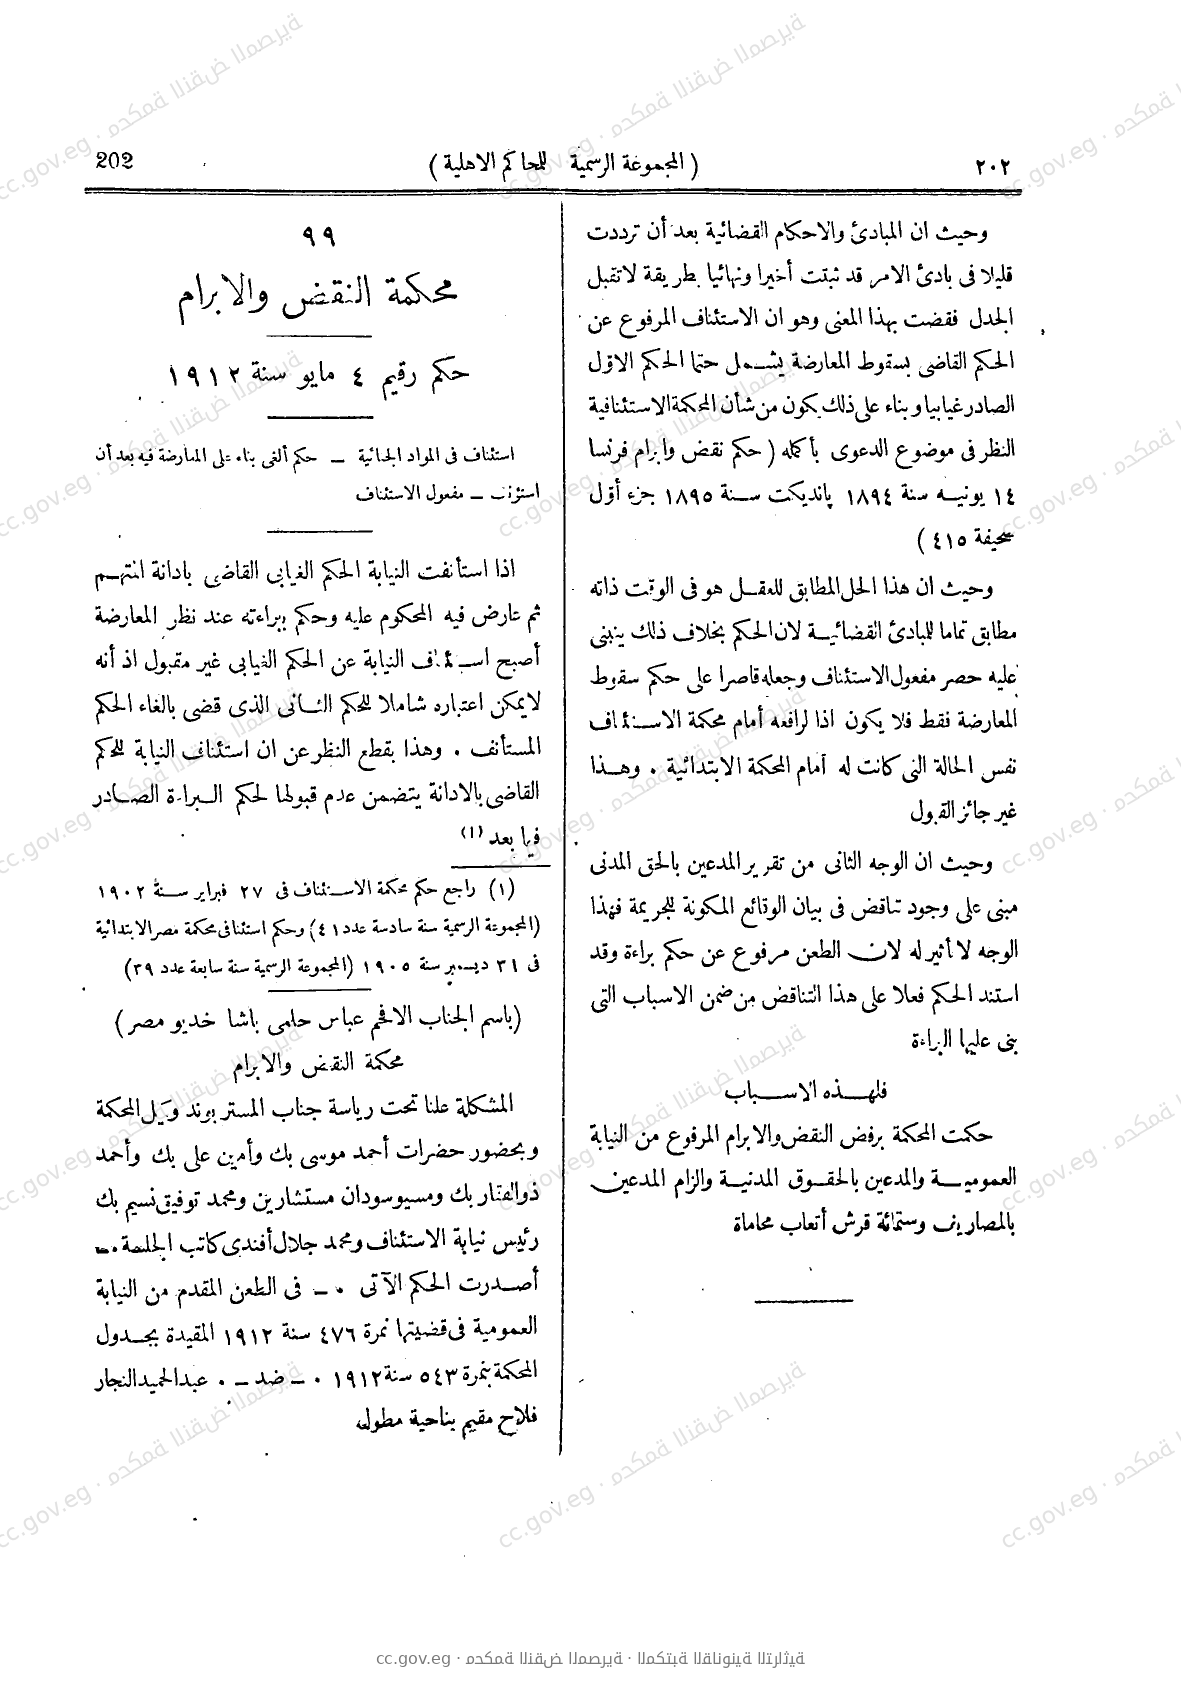 ٢٠٢ ( المجموعة الرسمية للمحاكم الاهلية ) 202
وحيث ان المبادئ والاحكام القضائية بعد أن ترددت
قليلا فى بادئ الامر قد ثبتت أخيرا ونهائيا بطريقة لا تقبل
الجدل فقضت بهذا المعنى وهو ان الاستئناف المرفوع عن
الحكم القاضى بسقوط المعارضة يشمل حتما الحكم الاوّل
الصادر غيابيا وبناء على ذلك يكون من شأن المحكمة الاستئنافية
النظر فى موضوع الدعوى بأكمله ( حكم نقض وابرام فرنسا
١٤ يونيه سنة ١٨٩٤ پانديكت سنة ١٨٩٥ جزء أوّل
صحيفة ٤١٥ )
وحيث ان هذا الحل المطابق للعقل هو فى الوقت ذاته
مطابق تماما للمبادئ القضائية لان الحكم بخلاف ذلك ينبنى
عليه حصر مفعول الاستئناف وجعله قاصرا على حكم سقوط
المعارضة فقط فلا يكون اذا لرافعه أمام محكمة الاستئناف
نفس الحالة التى كانت له أمام المحكمة الابتدائية . وهذا
غير جائز القبول
وحيث ان الوجه الثانى من تقرير المدعين بالحق المدنى
مبنى على وجود تناقض فى بيان الوقائع المكونة للجريمة فهذا
الوجه لا تأثير له لان الطعن مرفوع عن حكم براءة وقد
استند الحكم فعلا على هذا التناقض من ضمن الاسباب التى
بنى عليها البراءة
فلهذه الاسباب
حكمت المحكمة برفض النقض والابرام المرفوع من النيابة
العمومية والمدعين بالحقوق المدنية والزام المدعين
بالمصاريف وستمائة قرش أتعاب محاماة
٩٩
محكمة النقض والابرام
حكم رقيم ٤ مايو سنة ١٩١٢
استئناف فى المواد الجنائية – حكم ألغى بناء على المعارضة فيه بعد أن
استؤنف – مفعول الاستئناف
اذا استأنفت النيابة الحكم الغيابى القاضى بادانة المتهم
ثم عارض فيه المحكوم عليه وحكم ببراءته عند نظر المعارضة
أصبح استئناف النيابة عن الحكم الغيابى غير مقبول اذ أنه
لا يمكن اعتباره شاملا للحكم الثانى الذى قضى بالغاء الحكم
المستأنف . وهذا بقطع النظر عن ان استئناف النيابة للحكم
القاضى بالادانة يتضمن عدم قبولها لحكم البراءة الصادر
فيما بعد (١)
(١) راجع حكم محكمة الاستئناف فى ٢٧ فبراير سنة ١٩٠٢
(المجموعة الرسمية سنة سادسة عدد ٤١) وحكم استئنافى محكمة مصر الابتدائية
فى ٣١ ديسمبر سنة ١٩٠٥ (المجموعة الرسمية سنة سابعة عدد ٣٩)
(باسم الجناب الافخم عباس حلمى باشا خديو مصر)
محكمة النقض والابرام
المشكلة علنا تحت رياسة جناب المستر بوند وكيل المحكمة
وبحضور حضرات أحمد موسى بك وأمين على بك وأحمد
ذو الفقار بك ومسيو سودان مستشارين ومحمد توفيق نسيم بك
رئيس نيابة الاستئناف ومحمد جلال أفندى كاتب الجلسة .–
أصدرت الحكم الآتى .– فى الطعن المقدم من النيابة
العمومية فى قضيتها نمرة ٤٧٦ سنة ١٩١٢ المقيدة بجدول
المحكمة بنمرة ٥٤٣ سنة ١٩١٢ .– ضد – . عبد الحميد النجار
فلاح مقيم بناحية مطول
cc.gov.eg · محكمة النقض المصرية · المكتبة القانونية التراثية